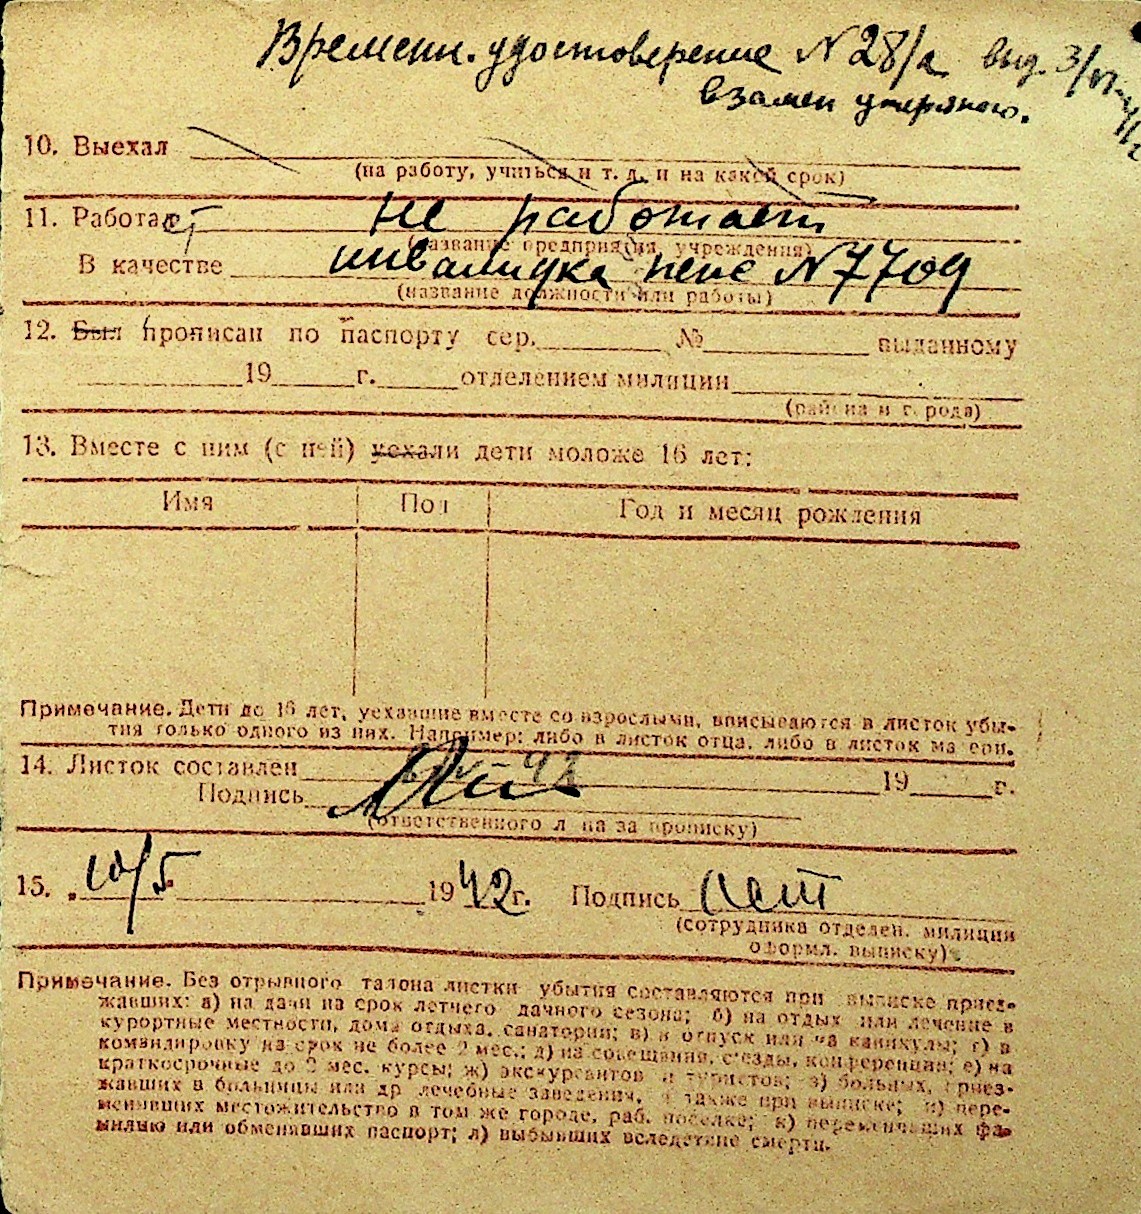 Времени. удостоверение N 28/а выд. 3/VI-
взамен утеряного.
10. Выехал
(на работу, учиться и т. д. и на какой срок)
11. Работает не работает
(название предприятия, учреждения)
В качестве инвалидка пенс N 7709
(название должности или работы)
12. Был прописан по паспорту сер. № выданному
19 г. отделением милиции
(района и города)
13. Вместе с ним (с ней) уехали дети моложе 16 лет:
Имя Пол Год и месяц рождения
Примечание. Дети до 16 лет, уехавшие вместе со взрослыми, вписываются в листок убы-
тия только одного из них. Например: либо в листок отца, либо в листок матери.
14. Листок составлен 19 г.
Подпись
(ответственного лица за прописку)
15. 10/5 1942 г. Подпись
(сотрудника отделен. милиции
оформл. выписку)
Примечание. Без отрывного талона листки убытия составляются при выписке приез-
жавших: а) на дачи на срок летнего дачного сезона; б) на отдых или лечение в
курортные местности, дома отдыха, санатории; в) в отпуск или на каникулы; г) в
командировку на срок не более 2 мес.; д) на совещания, съезды, конференции; е) на
краткосрочные до 2 мес. курсы; ж) экскурсантов и туристов; з) больных, приез-
жавших в больницы или др лечебные заведения, а также при выписке; и) пере-
менивших местожительство в том же городе, раб. поселке; к) переменивших фа-
милию или обменявших паспорт; л) выбывших вследствие смерти.